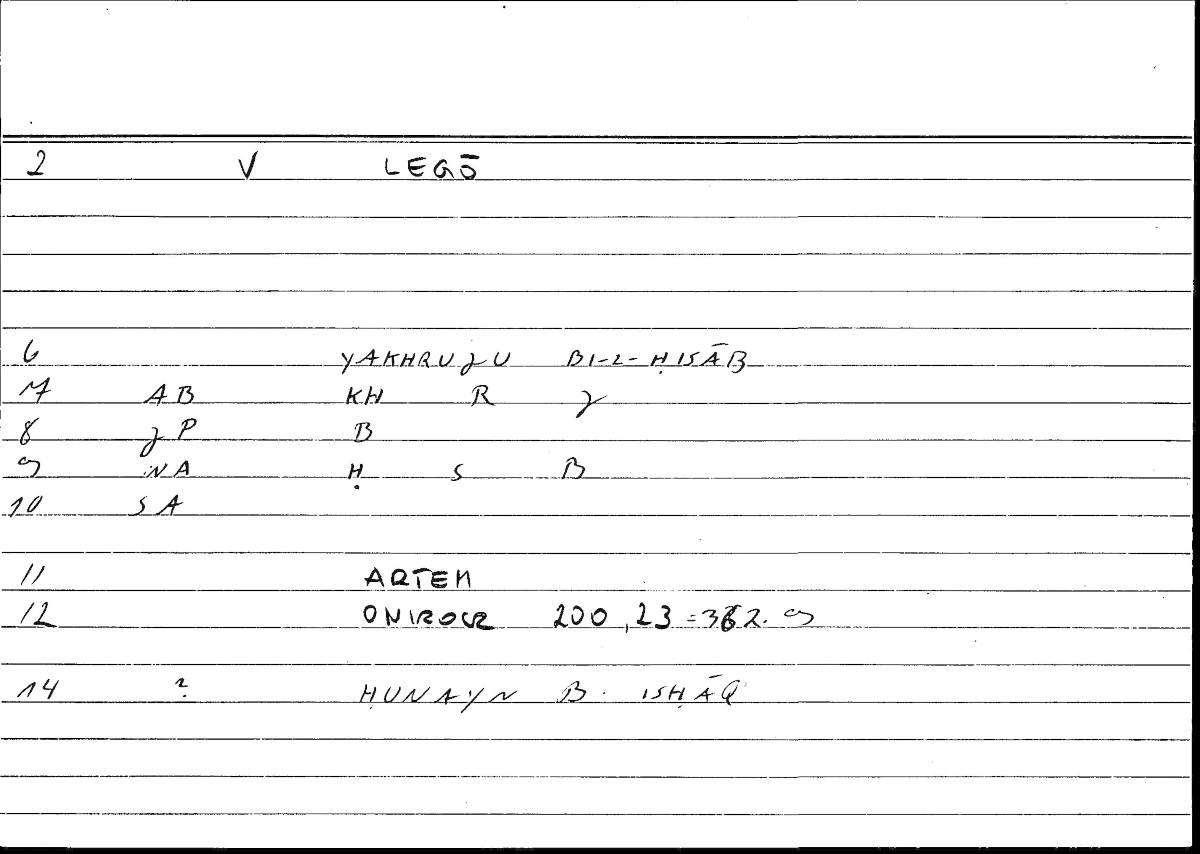 2 V LEGŌ
6 YAKHRUJU BI-L-ḤISĀB
7 AB KH R J
8 JP B
9 NA Ḥ S B
10 SA
11 ARTEM
12 ONIROCR 200,23=362.9
14 ? ḤUNAYN B. ISḤĀQ